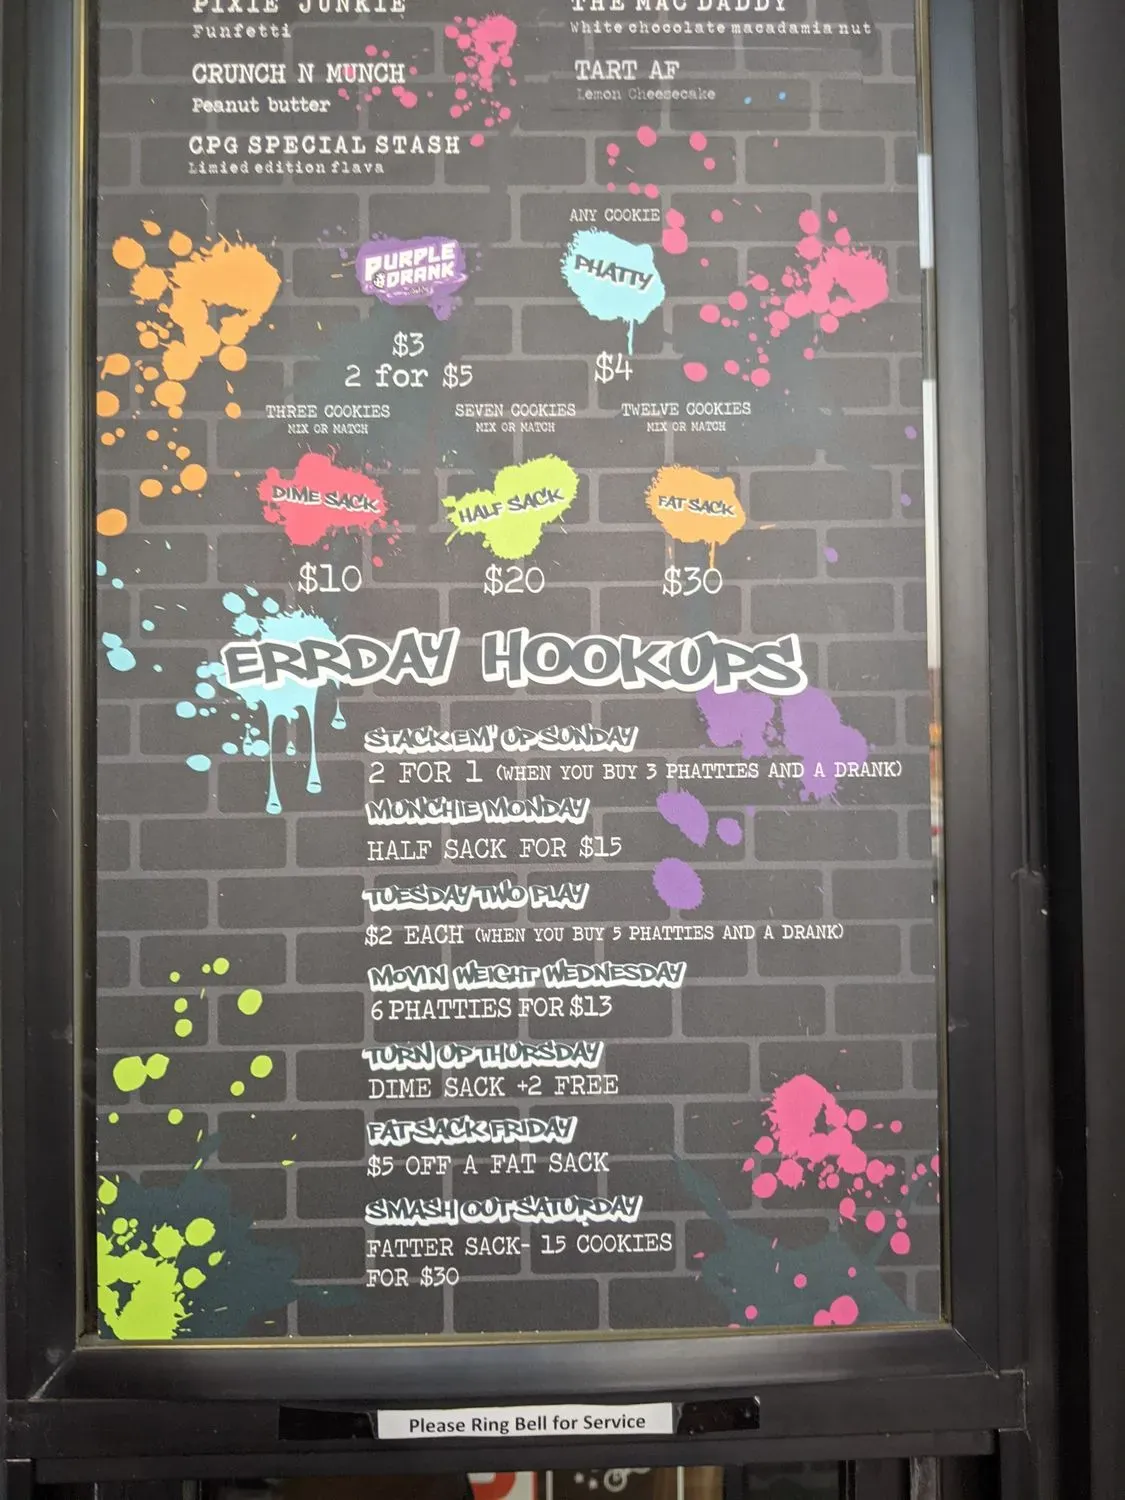 PIXIE JUNKIE
Funfetti
CRUNCH N MUNCH
Peanut butter
CPG SPECIAL STASH
Limied edition flava
THE MAC DADDY
White chocolate macadamia nut
TART AF
Lemon Cheesecake
PURPLE
DRANK
$3
2 for $5
ANY COOKIE
PHATTY
$4
THREE COOKIES
MIX OR MATCH
DIME SACK
$10
SEVEN COOKIES
MIX OR MATCH
HALF SACK
$20
TWELVE COOKIES
MIX OR MATCH
FAT SACK
$30
ERRDAY HOOKUPS
STACK EM' UP SUNDAY
2 FOR 1 (WHEN YOU BUY 3 PHATTIES AND A DRANK)
MUNCHIE MONDAY
HALF SACK FOR $15
TUESDAY TWO PLAY
$2 EACH (WHEN YOU BUY 5 PHATTIES AND A DRANK)
MOVIN WEIGHT WEDNESDAY
6 PHATTIES FOR $13
TURN UP THURSDAY
DIME SACK +2 FREE
FAT SACK FRIDAY
$5 OFF A FAT SACK
SMASH OUT SATURDAY
FATTER SACK- 15 COOKIES
FOR $30
Please Ring Bell for Service